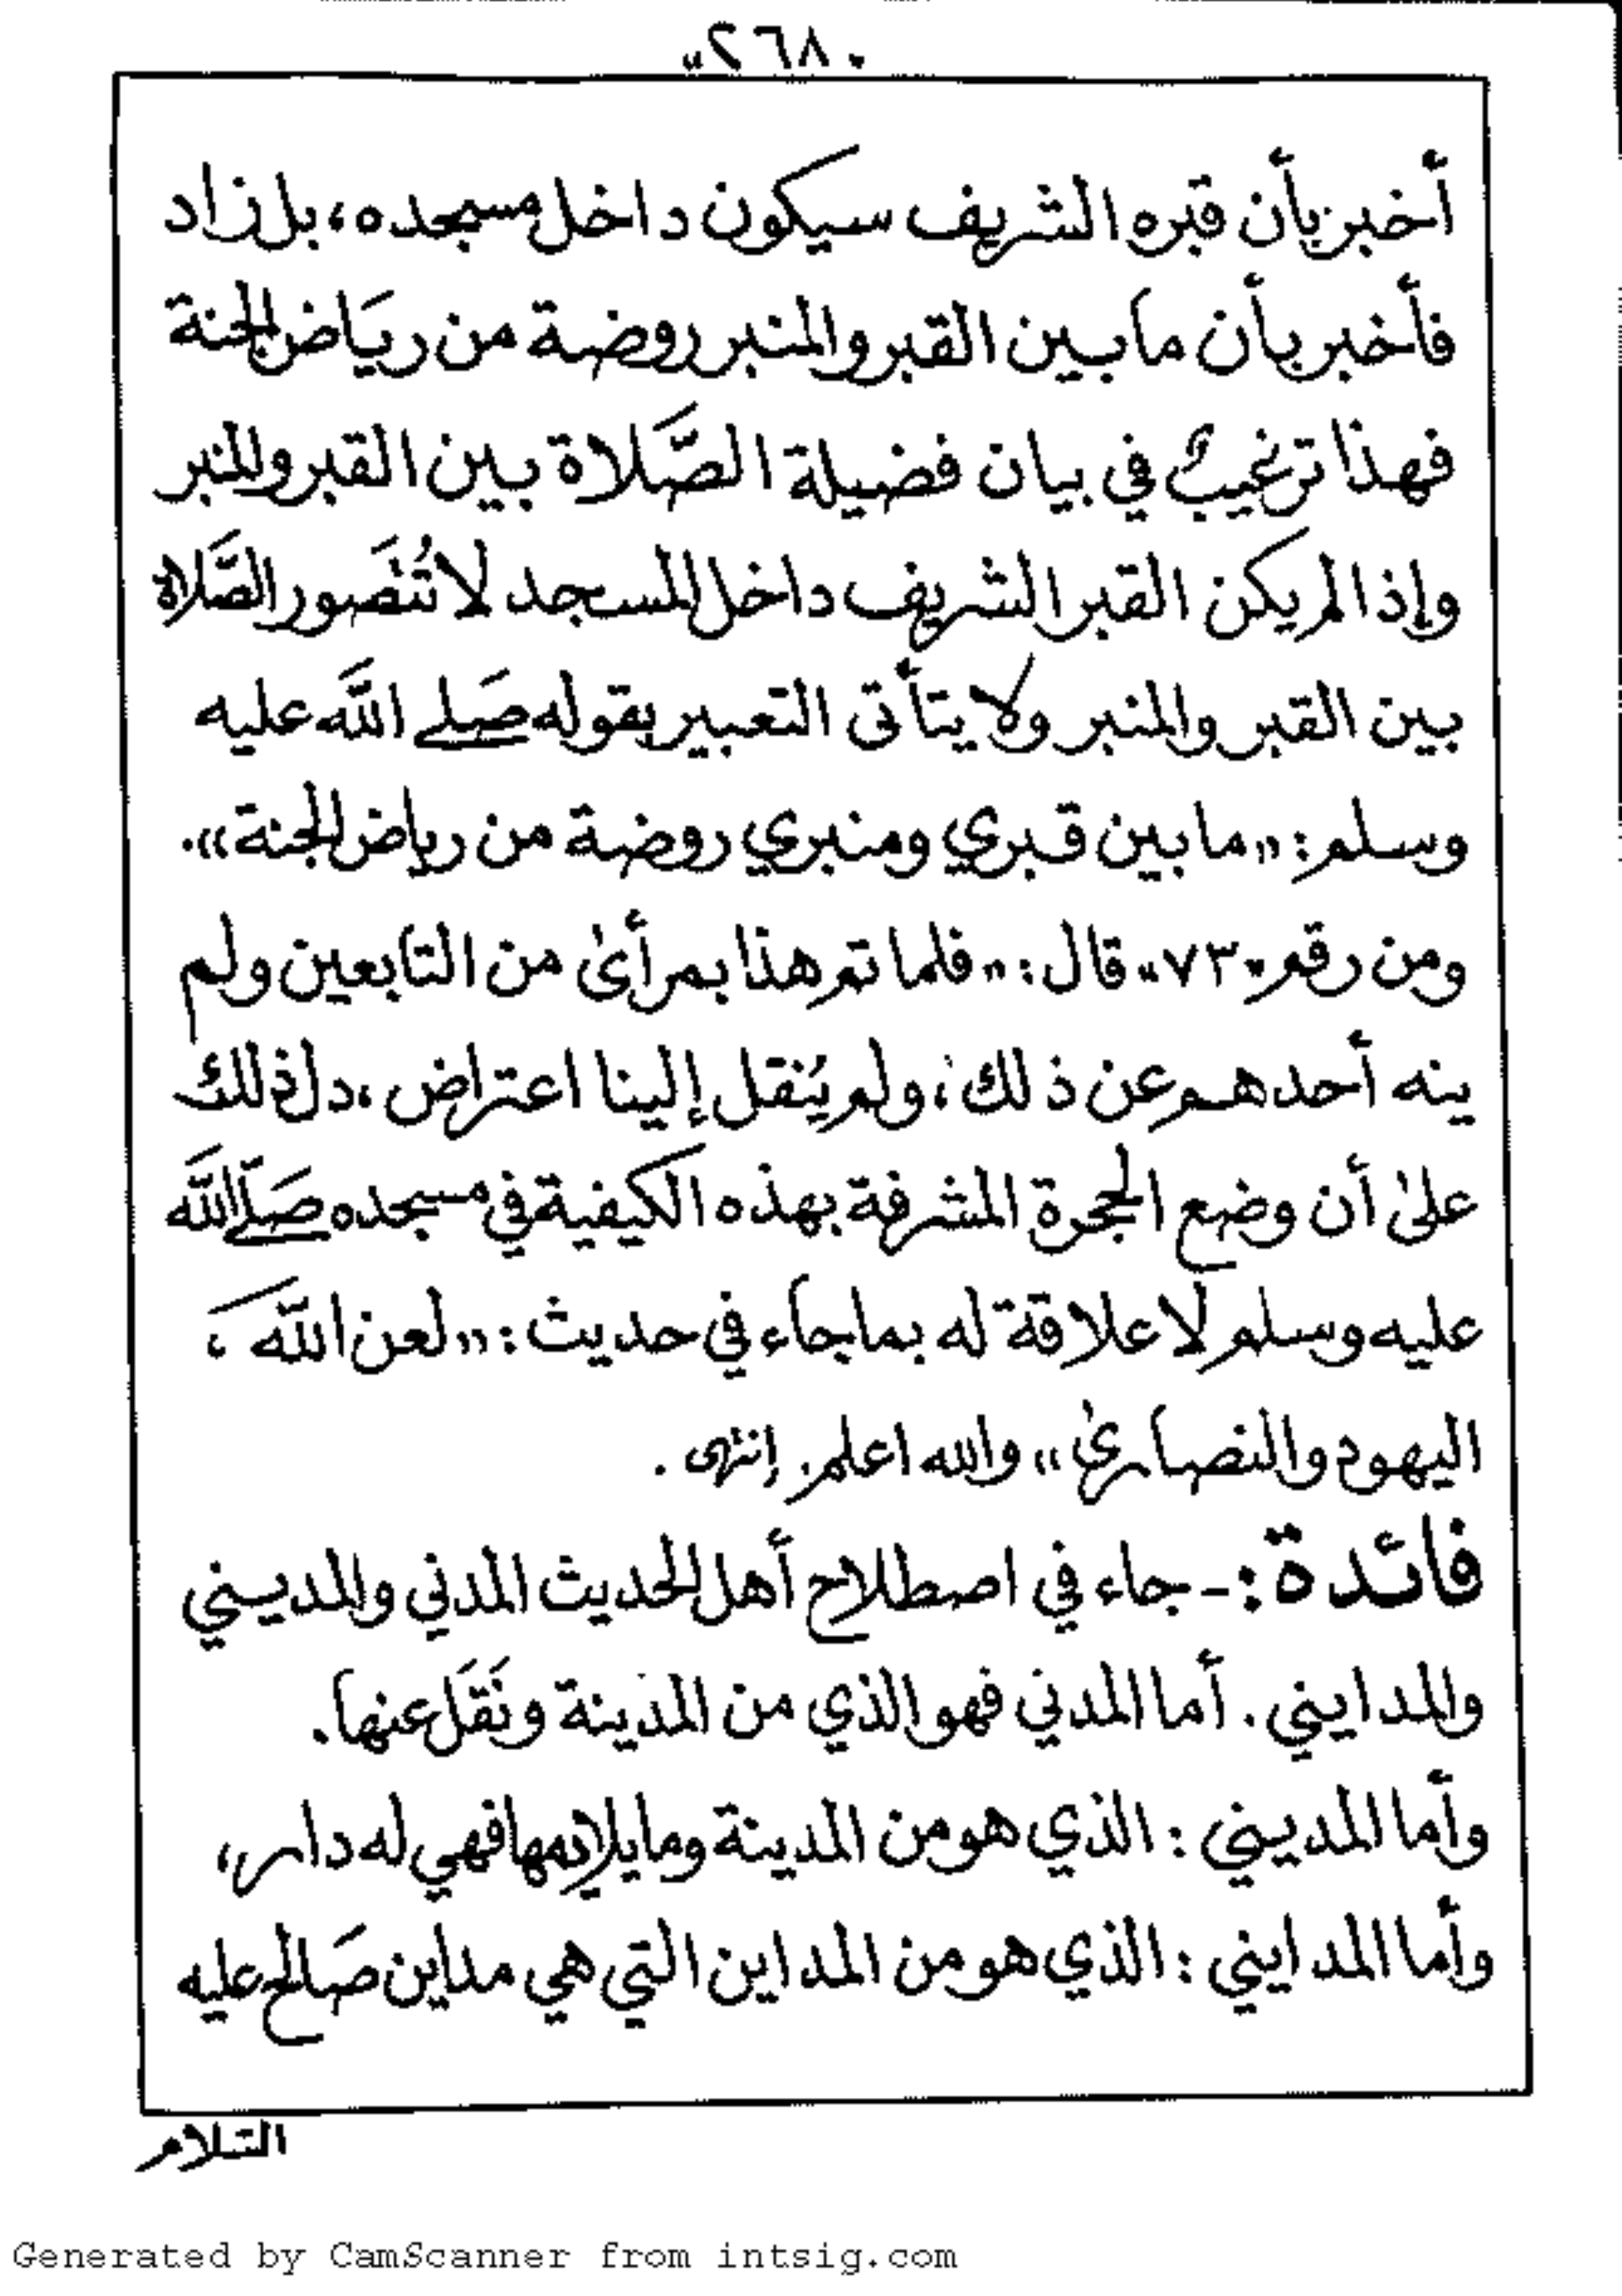 "٢٦٨"
أخبر بأن قبره الشريف سيكون داخل مسجده، بل زاد
فأخبر بأن ما بين القبر والمنبر روضة من ريَاض الجنة
فهذا ترغيبٌ في بيان فضيلة الصَّلاة بين القبر والمنبر
وإذا لم يكن القبر الشريف داخل المسجد لا تُتَصور الصَّلاة
بين القبر والمنبر ولا يتأتى التعبير بقوله صَلى اللَّه عليه
وسلم: «ما بين قبري ومنبري روضة من رياض الجنة».
ومن رقم "٧٣" قال: «فلما تم هذا بمرأىٰ من التابعين ولم
ينه أحدهم عن ذلك، ولم يُنقل إلينا اعتراض، دل ذلك
علىٰ أن وضع الحجرة المشرفة بهذه الكيفية في مسجده صَلّى اللَّه
عليه وسلم لا علاقة له بما جاء في حديث: «لعن اللَّه،
اليهود والنصارىٰ» والله اعلم. إنتهى.
فائدة:- جاء في اصطلاح أهل الحديث المدني والمديني
والمدايني. أما المدني فهو الذي من المدينة ونَقَل عنها.
وأما المديني: الذي هو من المدينة وما يلايمها فهي له دار،
وأما المدايني: الذي هو من المداين التي هي مداين صَالح عليه
السّلام
Generated by CamScanner from intsig.com